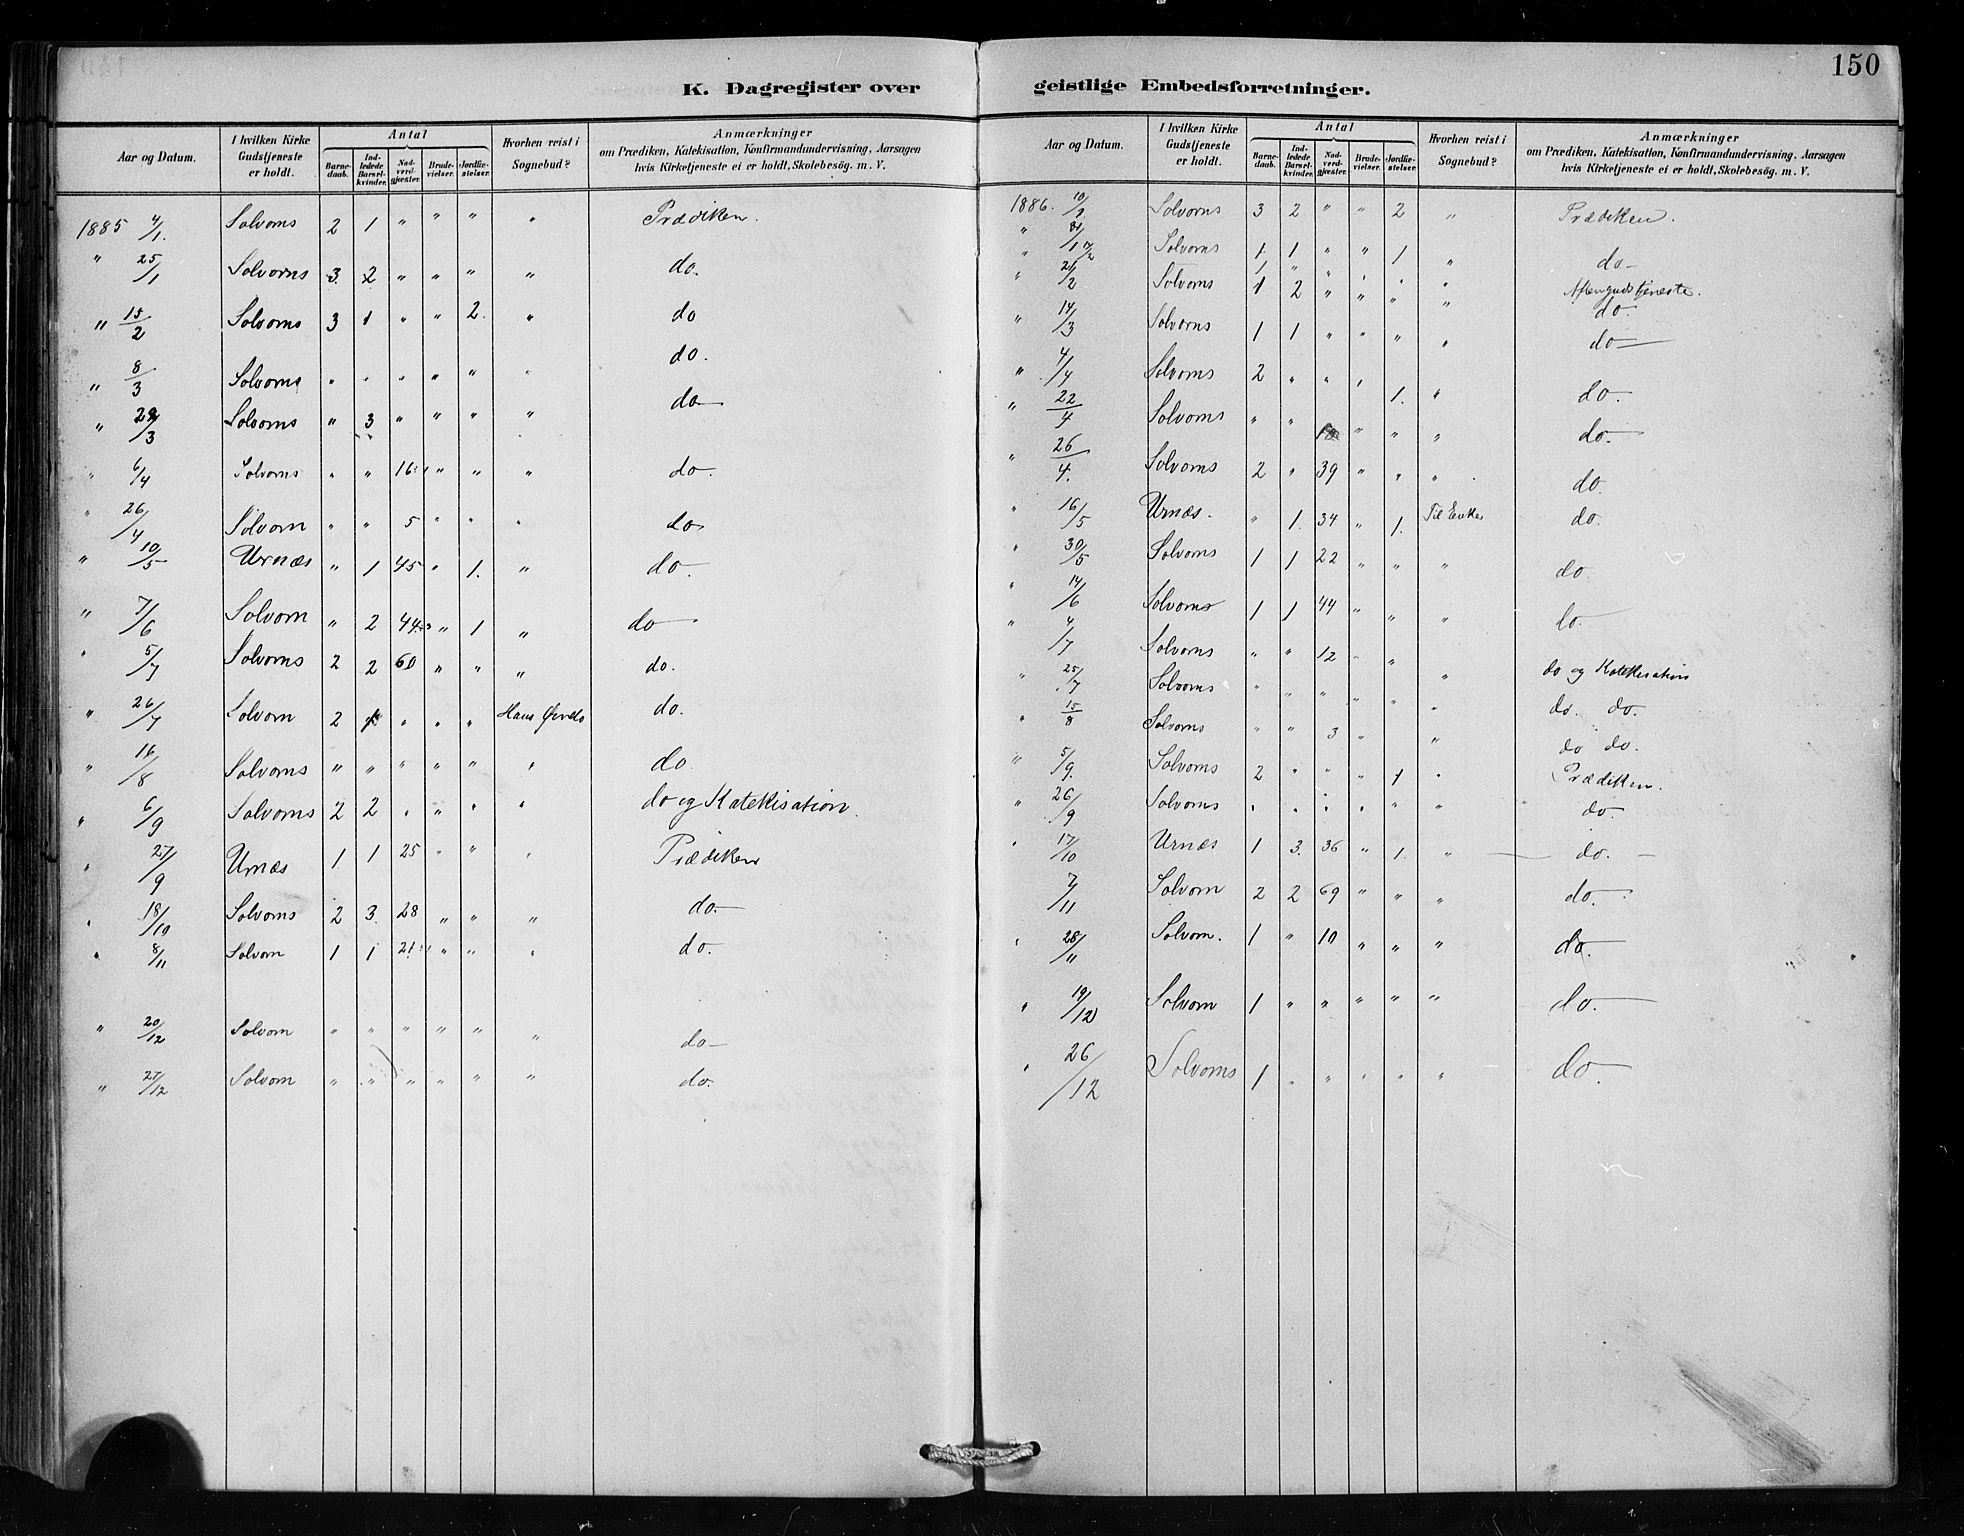 150
K. Dagregister over geistlige Embedsforretninger.
Aar og Datum. I hvilken Kirke Gudstjeneste er holdt. Antal Barnedaab. Indledede Barselkvinder. Nadverdgjester. Brudevielser. Jordfæstelser. Hvorhen reist i Sognebud? Anmærkninger om Prædiken, Katekisation, Konfirmandundervisning, Aarsagen hvis Kirketjeneste ei er holdt, Skolebesög. m. V.
1885 4/1. Solvorns 2 1 " " " " Prædiken.
" 25/1 Solvorns 3 2 " " " " do.
" 15/2 Solvorns 3 1 " " 2. " do
" 8/3 Solvorns " " " " " " do.
" /3 Solvorns " 3 " " " " do
" 6/4 Solvorns " " 16 " " " do.
" 26/4 Solvorn " " 5 " " " do
" 10/5 Urnæs " 1 45 " 1. " do.
" 7/6 Solvorn " 2 44 " 1 " do
" 5/7 Solvorns 2 2 60 " " " do.
" 26/7 Solvorn 2 " " " Hans do.
" 16/8 Solvorns " " " " " " do
" 6/9 Solvorns 2 2 " " " " do og Katekisation.
" 27/9 Urnæs 1 1 25 " " " Prædiken
" 18/10 Solvorns 2 3 28 " " " do.
" 8/11 Solvorn 1 1 21 " " " do.
" 20/12 Solvorn " " " " " " do
" 27/12 Solvorn " " " " " " do.
Aar og Datum. I hvilken Kirke Gudstjeneste er holdt. Antal Barnedaab. Indledede Barselkvinder. Nadverdgjester. Brudevielser. Jordfæstelser. Hvorhen reist i Sognebud? Anmærkninger om Prædiken, Katekisation, Konfirmandundervisning, Aarsagen hvis Kirketjeneste ei er holdt, Skolebesög. m. V.
1886. 10/1 Solvorns 3 2 " " 2 " Prædiken.
" 31/1 Solvorns 1 1 " " 1 " do
" 17/2 1 " " " " " Aftengudstjeneste.
" 21/2 Solvorns 1 2 " " " " do.
" 14/3 Solvorns 1 1 " " " " do
" 4/4 Solvorns 2 " " " 1. " do.
" 22/4 Solvorns " " " " " do.
" 26/4. Solvorns 2 " 39 " " " do.
" 16/5 Urnæs. " 1. 34 " 1. Til do.
" 30/5 Solvorns 1 1 22 " " " do.
" 14/6 Solvorns 1 1 44 " " " do.
" 4/7 Solvorns " " 12 " " " do og Katekisation
" 25/7 Solvorns " " " " " " do. do.
" 15/8 Solvorns " " 3 " " " do do.
" 5/9. Solvorns 2 " " " 1 " Prædiken.
" 26/9 Solvorns " " " " " " do.
" 17/10 Urnæs 1 3. 36 " 1. " do.
7/11 Solvorn 2 2 69 " " " do.
" 28/11 Solvorn. 1 " 10 " " " do.
" 19/12 Solvorn 1 " " " " " do.
" 26/12 Solvorns 1 " " " " " do.